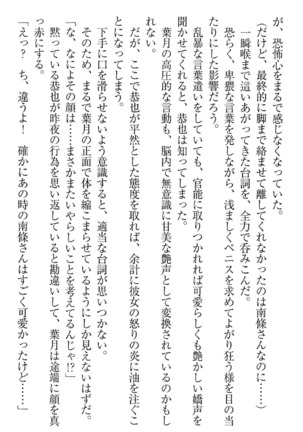 が、恐怖心をまるで感じなくなっていた。
（だけど、最終的に脚まで絡ませて離してくれなかったのは南條さんなのに……）
一瞬喉まで這いあがってきた台詞を、全力で呑みこんだ。
恐らく、卑猥な言葉を発しながら、浅ましくペニスを求めてよがり狂う様を目の当
たりにした影響だろう。
乱暴な言葉遣いをしていても、官能に取りつかれれば可愛らしくも艶かしい嬌声を
聞かせてくれると、恭也は知ってしまった。
葉月の高圧的な言動も、脳内で無意識に甘美な艶声として変換されているのかもし
れない。
だが、ここで恭也が平然とした態度を取れば、余計に彼女の怒りの炎に油を注ぐこ
とになってしまう。
下手に口を滑らせないよう意識すると、適当な台詞が思いつかない。
そのため、まるで葉月の正面で体を縮こまらせているようにしか見えないはずだ。
「な、なによその顔は……まさかまたいやらしいことを考えてるんじゃ!?」
黙っている恭也が昨夜の行為を思い返していると勘違いして、葉月は途端に顔を真
っ赤にする。
「えっ？　ち、違うよ！　確かにあの時の南條さんはすごく可愛かったけど……」